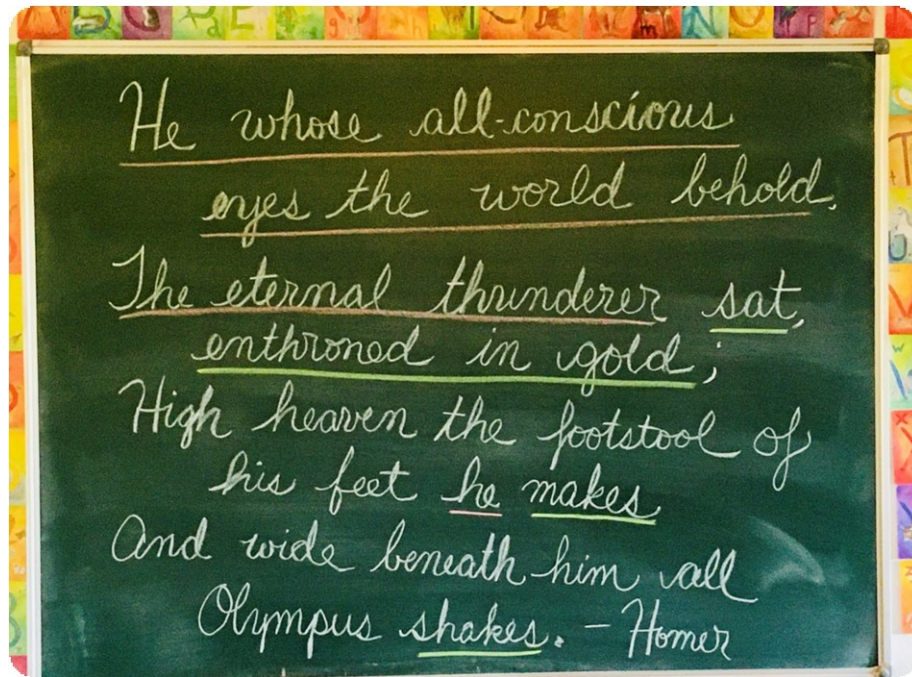 He whose all-conscious
eyes the world behold.
The eternal thunderer sat,
enthroned in gold;
High heaven the footstool of
his feet he makes
And wide beneath him all
Olympus shakes. - Homer